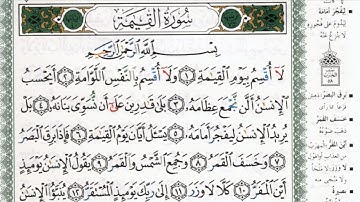 سُورَةُ القِيَامَةِ
بِسْمِ اللَّهِ الرَّحْمَٰنِ الرَّحِيمِ
لَا أُقْسِمُ بِيَوْمِ الْقِيَٰمَةِ ١ وَلَا أُقْسِمُ بِالنَّفْسِ اللَّوَّامَةِ ٢ أَيَحْسَبُ
الْإِنسَٰنُ أَلَّن نَّجْمَعَ عِظَامَهُ ٣ بَلَىٰ قَٰدِرِينَ عَلَىٰ أَن نُّسَوِّيَ بَنَانَهُ ٤ بَلْ
يُرِيدُ الْإِنسَٰنُ لِيَفْجُرَ أَمَامَهُ ٥ يَسْـَٔلُ أَيَّانَ يَوْمُ الْقِيَٰمَةِ ٦ فَإِذَا بَرِقَ الْبَصَرُ
٧ وَخَسَفَ الْقَمَرُ ٨ وَجُمِعَ الشَّمْسُ وَالْقَمَرُ ٩ يَقُولُ الْإِنسَٰنُ يَوْمَئِذٍ
أَيْنَ الْمَفَرُّ ١٠ كَلَّا لَا وَزَرَ ١١ إِلَىٰ رَبِّكَ يَوْمَئِذٍ الْمُسْتَقَرُّ ١٢ يُنَبَّؤُا الْإِنسَٰنُ
لِيَفْجُرَ أَمَامَهُ
بَرِقَ الْبَصَرُ
خَسَفَ الْقَمَرُ
أَيْنَ الْمَفَرُّ